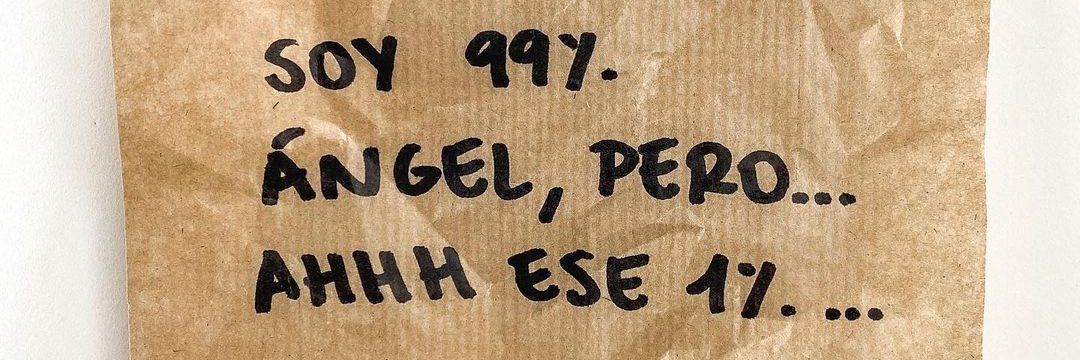 SOY 99%.
ÁNGEL, PERO...
AHHH ESE 1%. ...